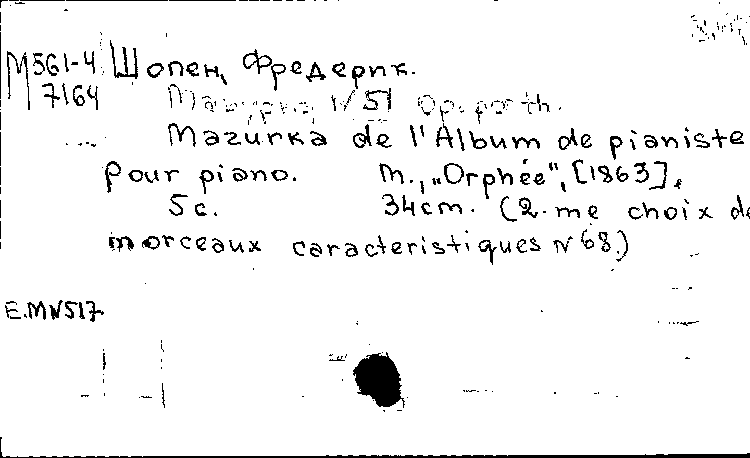 М561-4 Шопен, Фредерик.
7164 Мазурка, № 51 Op. posth.
Mazurka de l'Album de pianiste
pour piano. М., „Orphée", [1863],
5 с. 34 cm. (2-me choix de
morceaux caracteristiques № 68.)
E.MN517